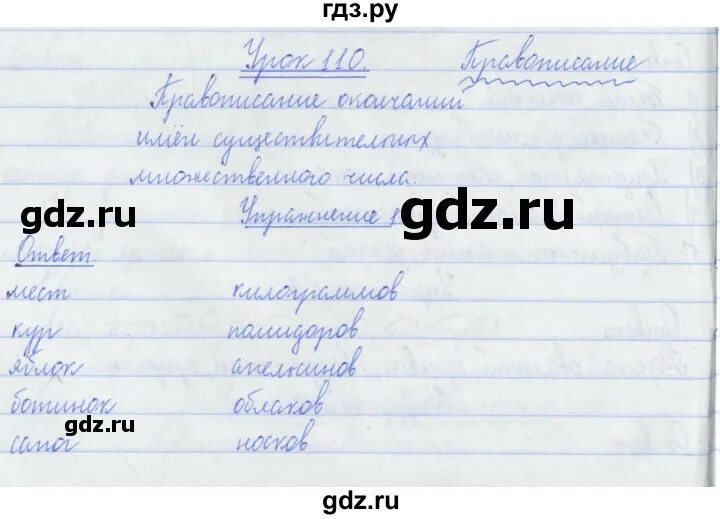 гдз.ру
Урок 110. Правописание
Правописание окончаний
имён существительных
множественного числа.
gdz.ru gdz.ru
Упражнение 1
Ответ
мест килограммов
кур помидоров
яблок апельсинов
ботинок облаков
gdz.ru
сапог носков
gdz.ru